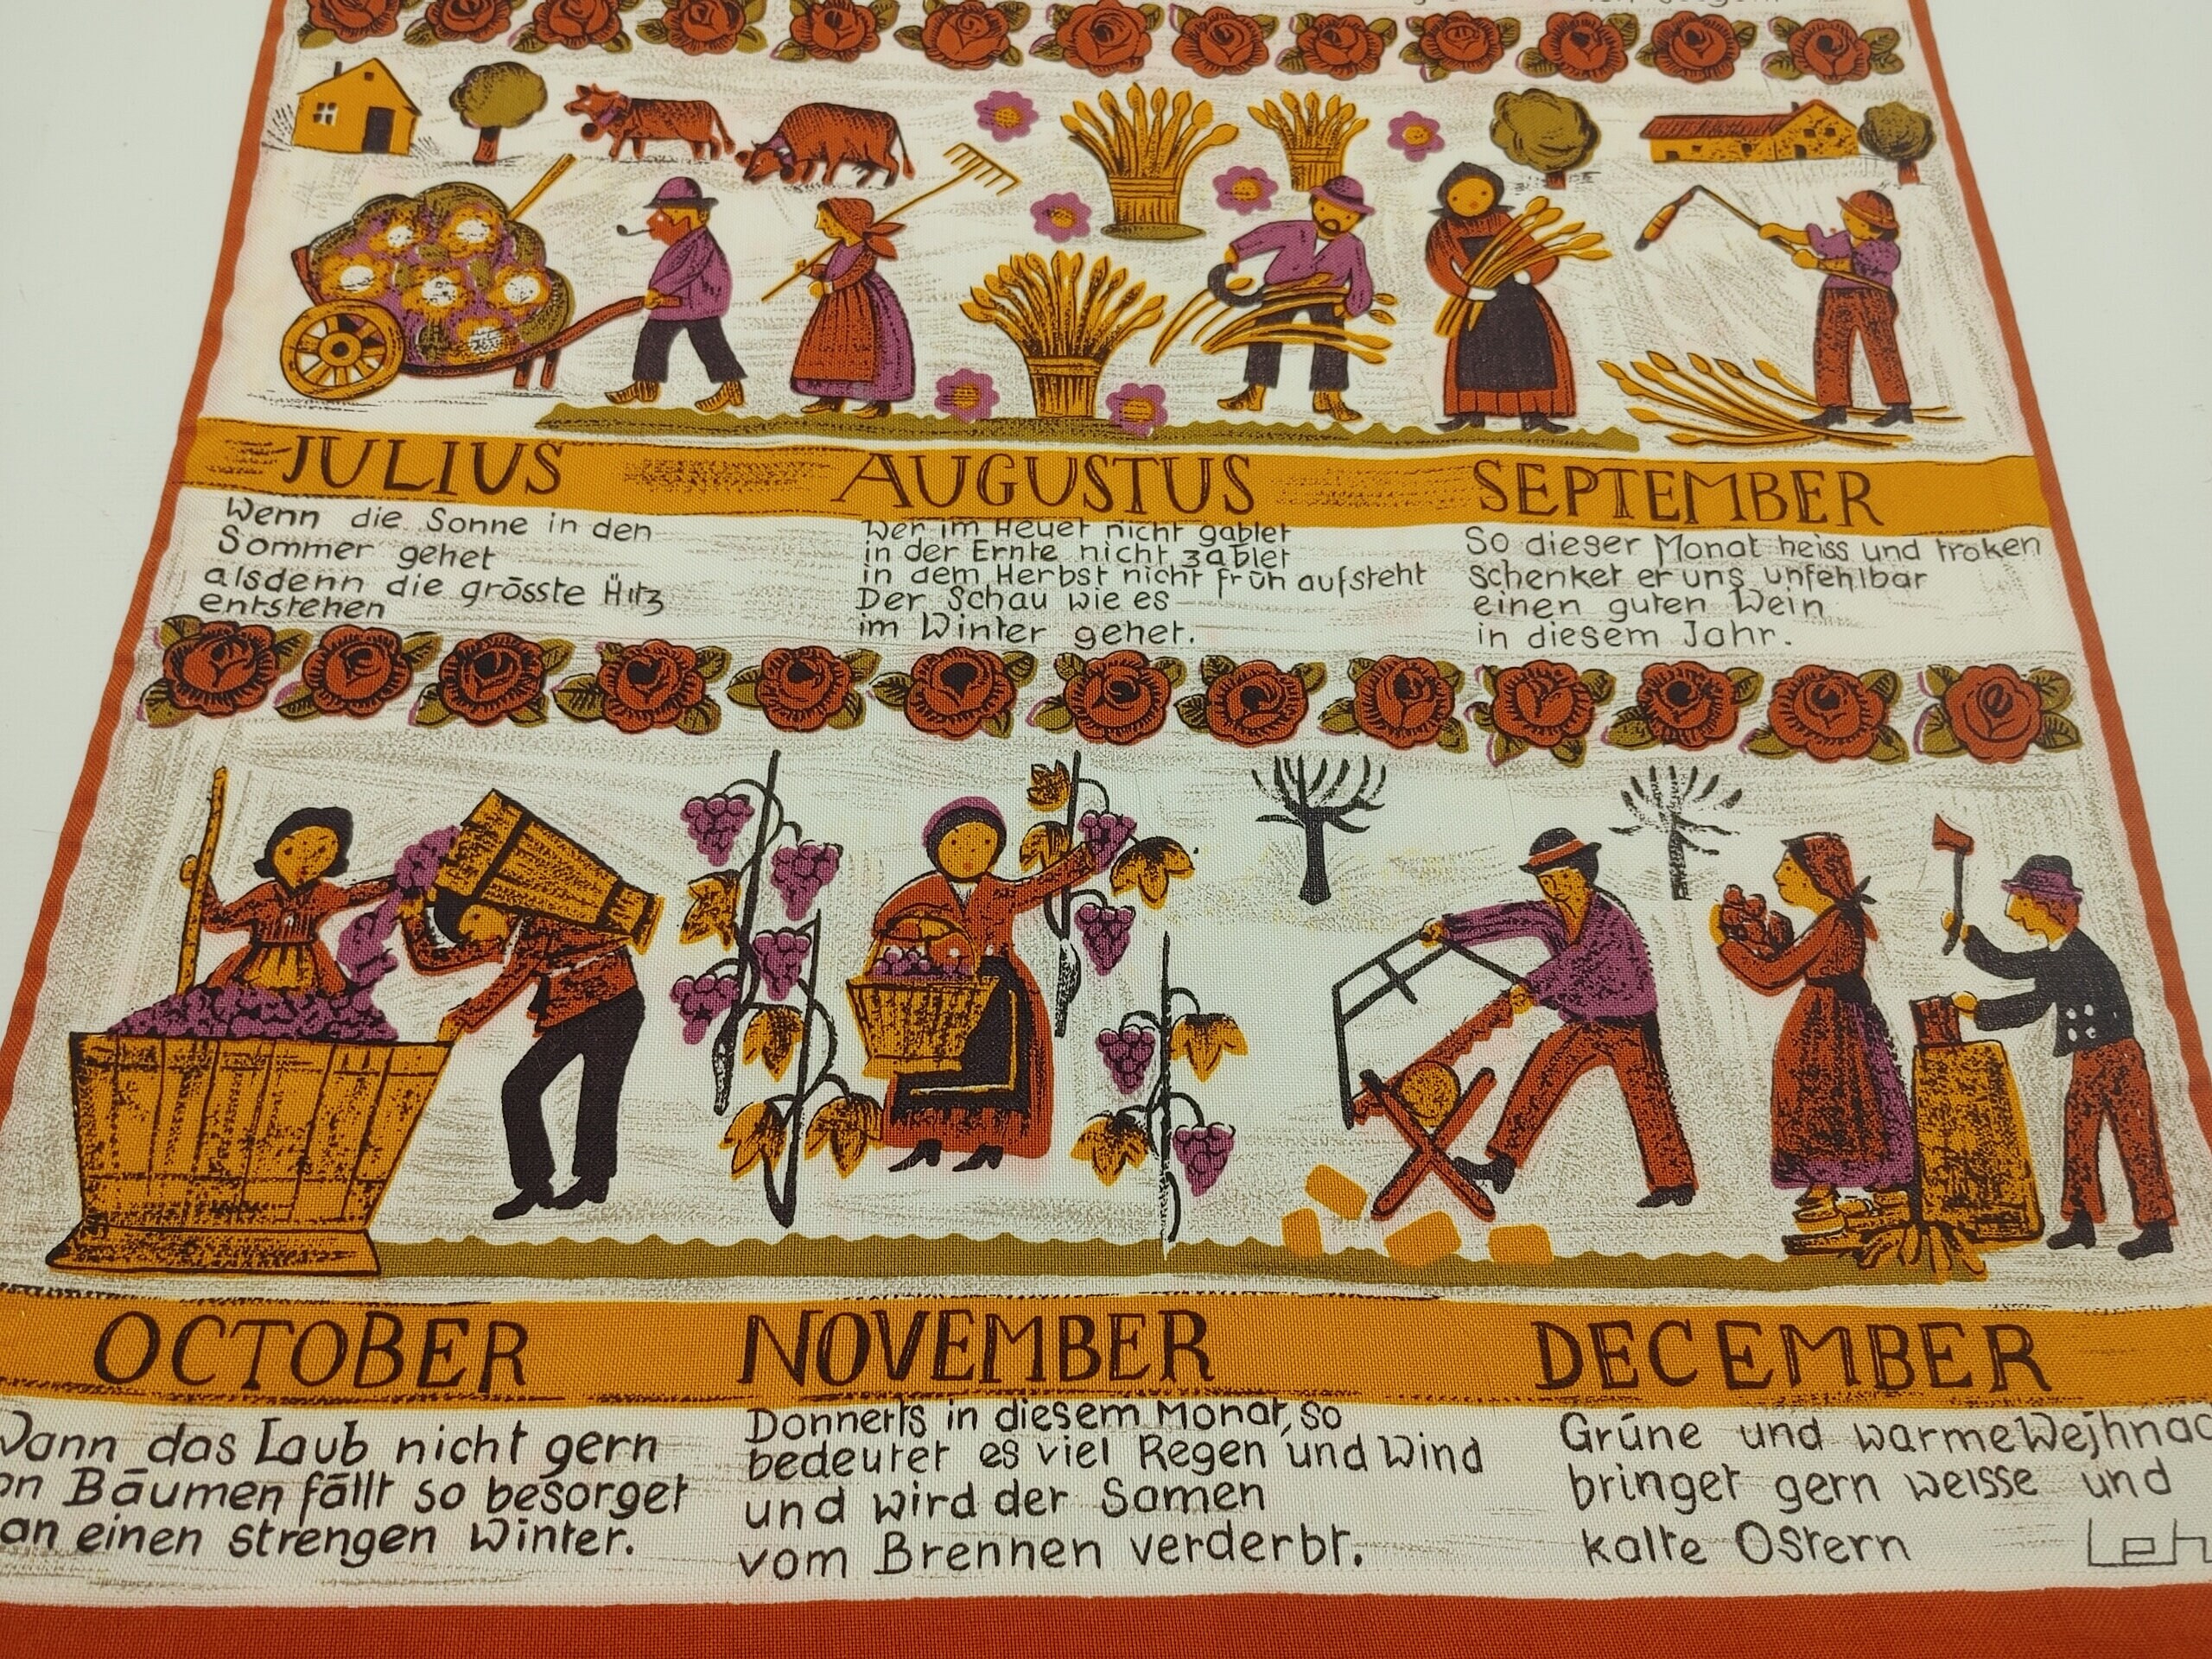 JULIUS
Wenn die Sonne in den
Sommer gehet
alsdenn die grösste Hitz
entstehen
AUGUSTUS
Wer im Heuet nicht gablet
in der Ernte nicht zablet
in dem Herbst nicht früh aufsteht
Der Schau wie es
im Winter gehet.
SEPTEMBER
So dieser Monat heiss und troken
schenket er uns unfehlbar
einen guten Wein
in diesem Jahr.
OCTOBER
Wann das Laub nicht gern
on Bäumen fällt so besorget
an einen strengen Winter.
NOVEMBER
Donnerts in diesem Monat, so
bedeutet es viel Regen und Wind
und wird der Samen
vom Brennen verderbt.
DECEMBER
Grüne und warme Wejhnac
bringet gern weisse und
kalte Ostern
Leh